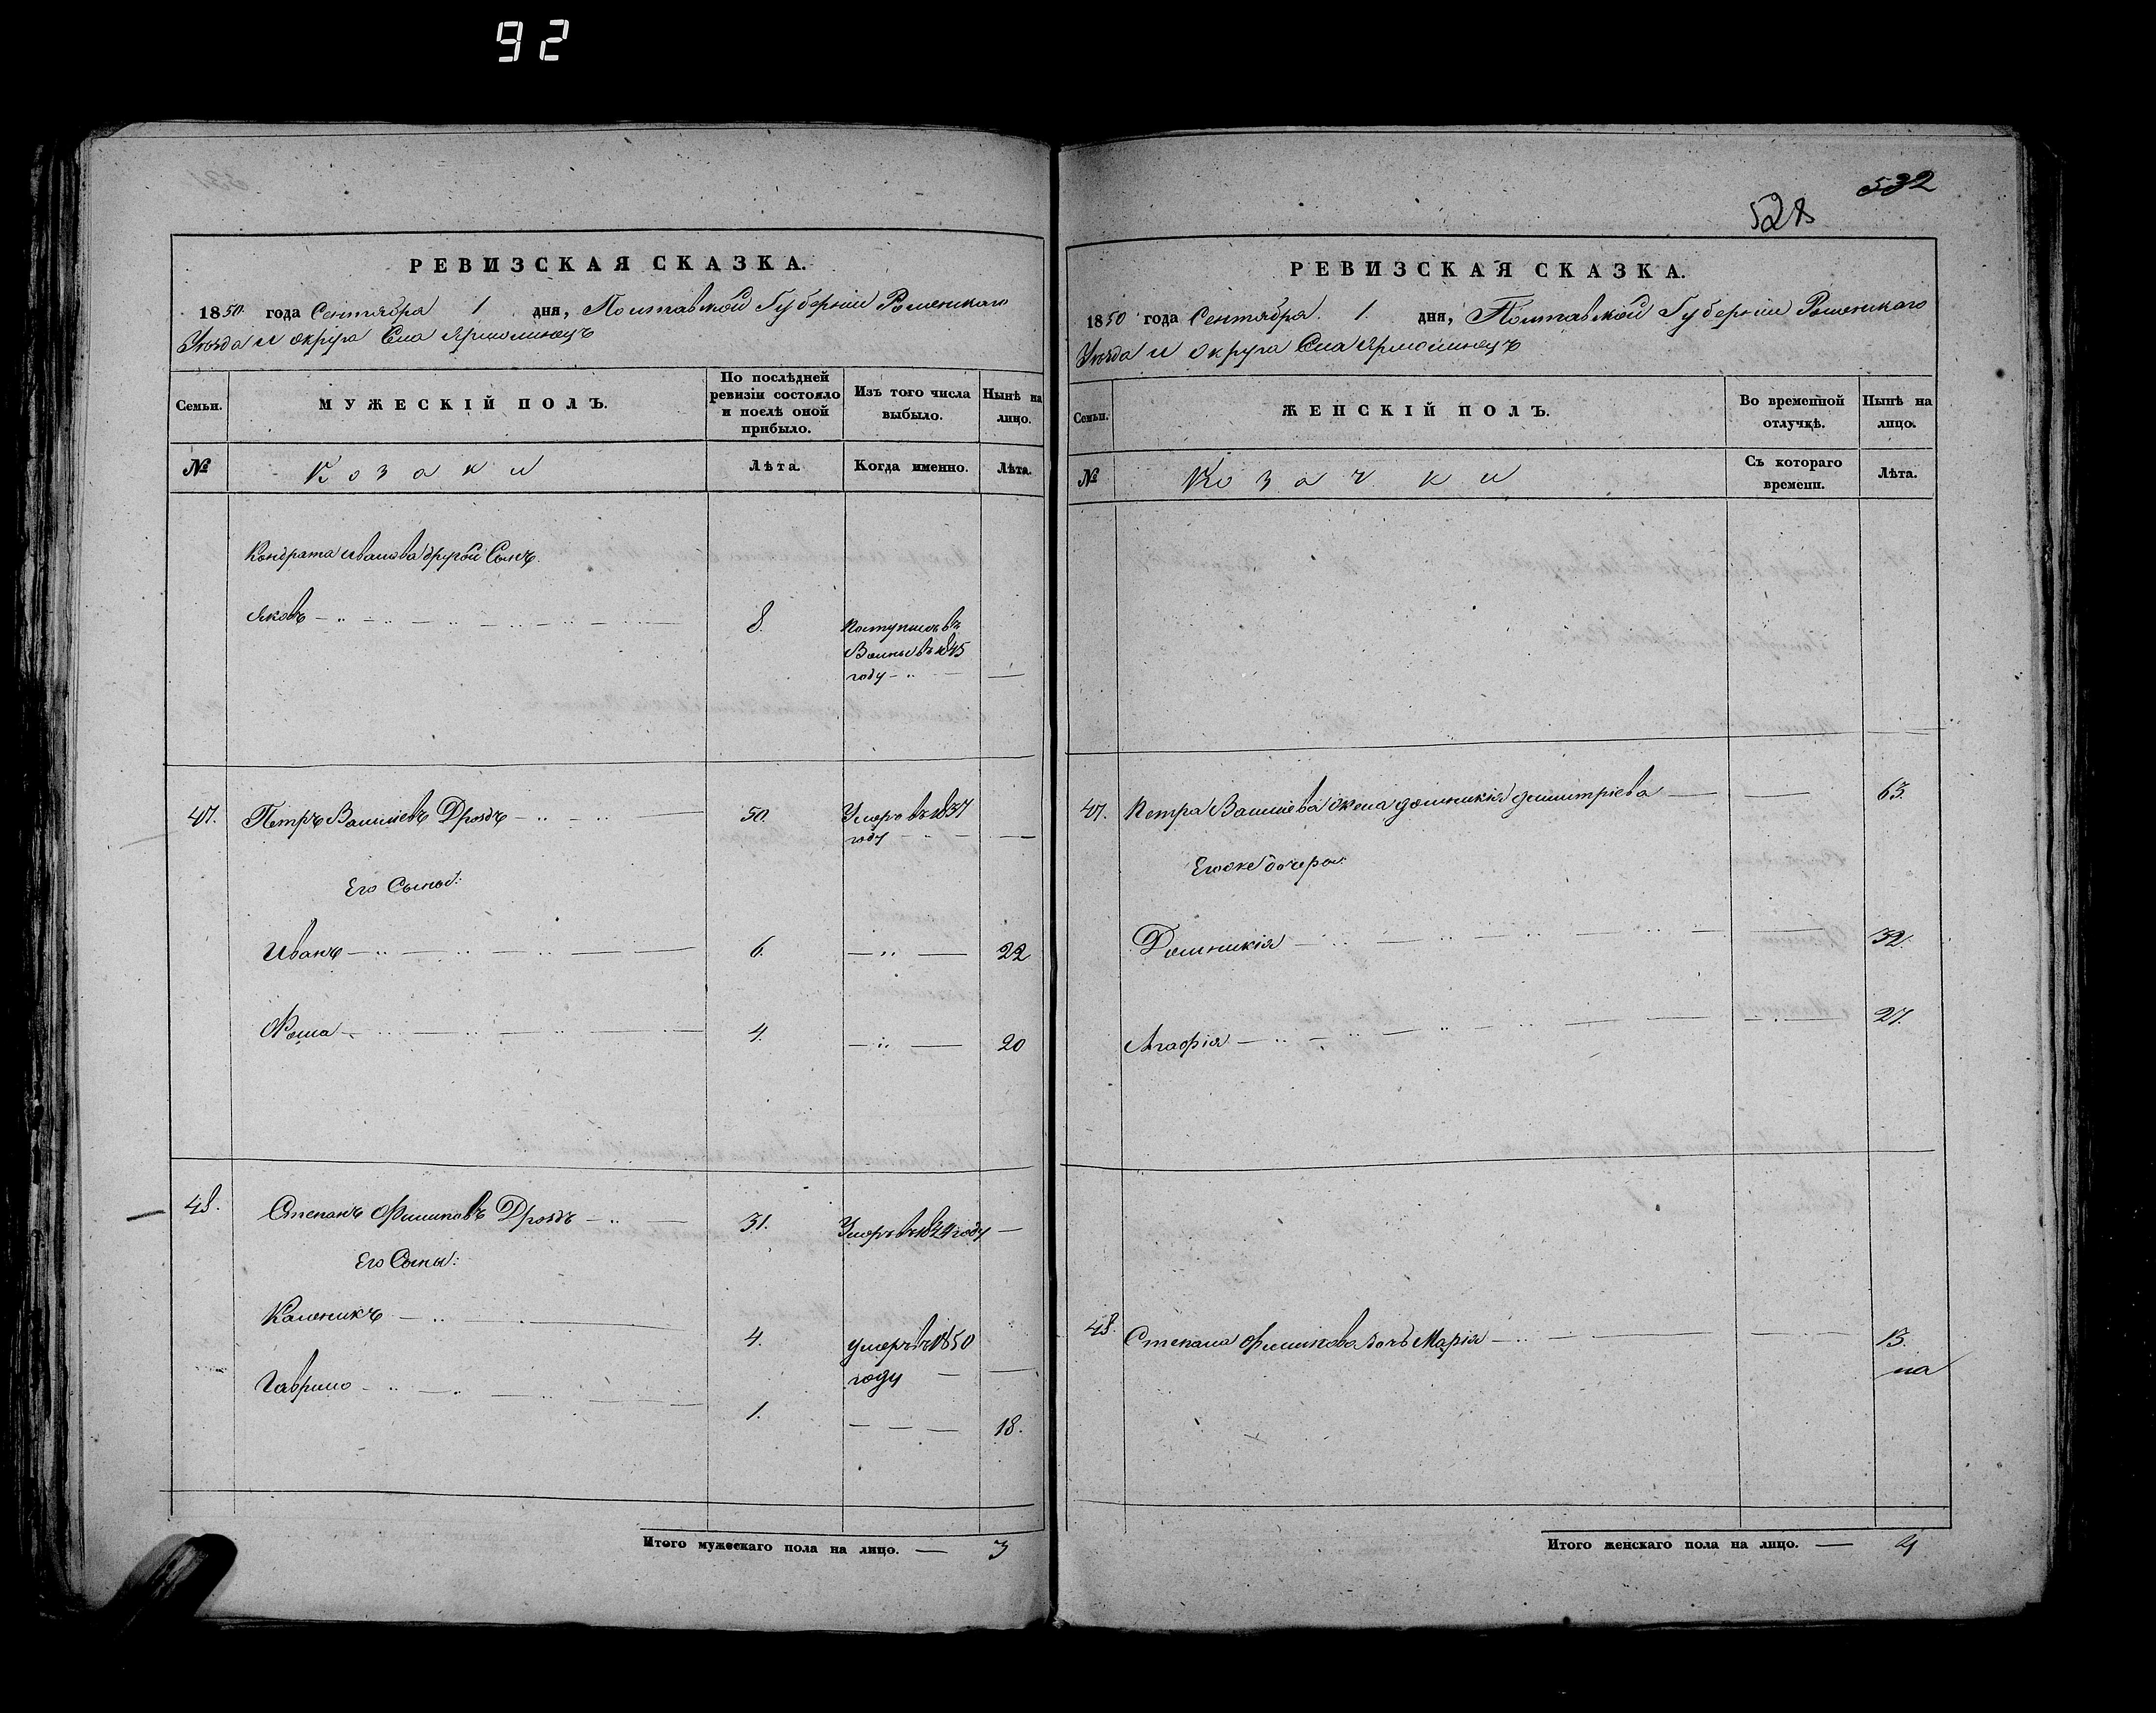 92
РЕВИЗСКАЯ СКАЗКА.
1850 года Сентября 1 дня, Полтавской Губерніи Роменскаго
Уѣзда и округа Села Ярмолинецъ
Семьи.
МУЖЕСКІЙ ПОЛЪ.
По послѣдней ревизіи состояло и послѣ оной прибыло.
Изъ того числа выбыло.
Нынѣ на лицо.
№
Козаки
Лѣта.
Когда именно.
Лѣта.
Кондрата Иванова другой Сынъ.
Яковъ 8. Поступилъ въ
въ 1845
году —
47. Петръ Василіевъ Дроздъ — 50. Умеръ въ 1837
году —
Его Сыны:
Иванъ — 6. — 22
Фома — 4. — 20
48. Степанъ Филиповъ Дроздъ — 31. Умеръ въ году —
Его Сыны:
Каленикъ — 4. умеръ въ 1850
году —
Гаврило — 1. — 18.
Итого мужескаго пола на лицо. — 3
532
528
РЕВИЗСКАЯ СКАЗКА.
1850 года Сентября 1 дня, Полтавской Губерніи Роменскаго
Уѣзда и округа Села Ярмолинецъ
Семьи.
ЖЕНСКІЙ ПОЛЪ.
Во временной отлучкѣ.
Нынѣ на лицо.
№
Козачки
Съ котораго времени.
Лѣта.
47. Петра Василіева жена Домникія Димитріева — 63.
Егоже дочери:
Домникія — 32.
Агафія — 27.
48. Степана Филипова дочь Марія — 13.
на
Итого женскаго пола на лицо. — 4